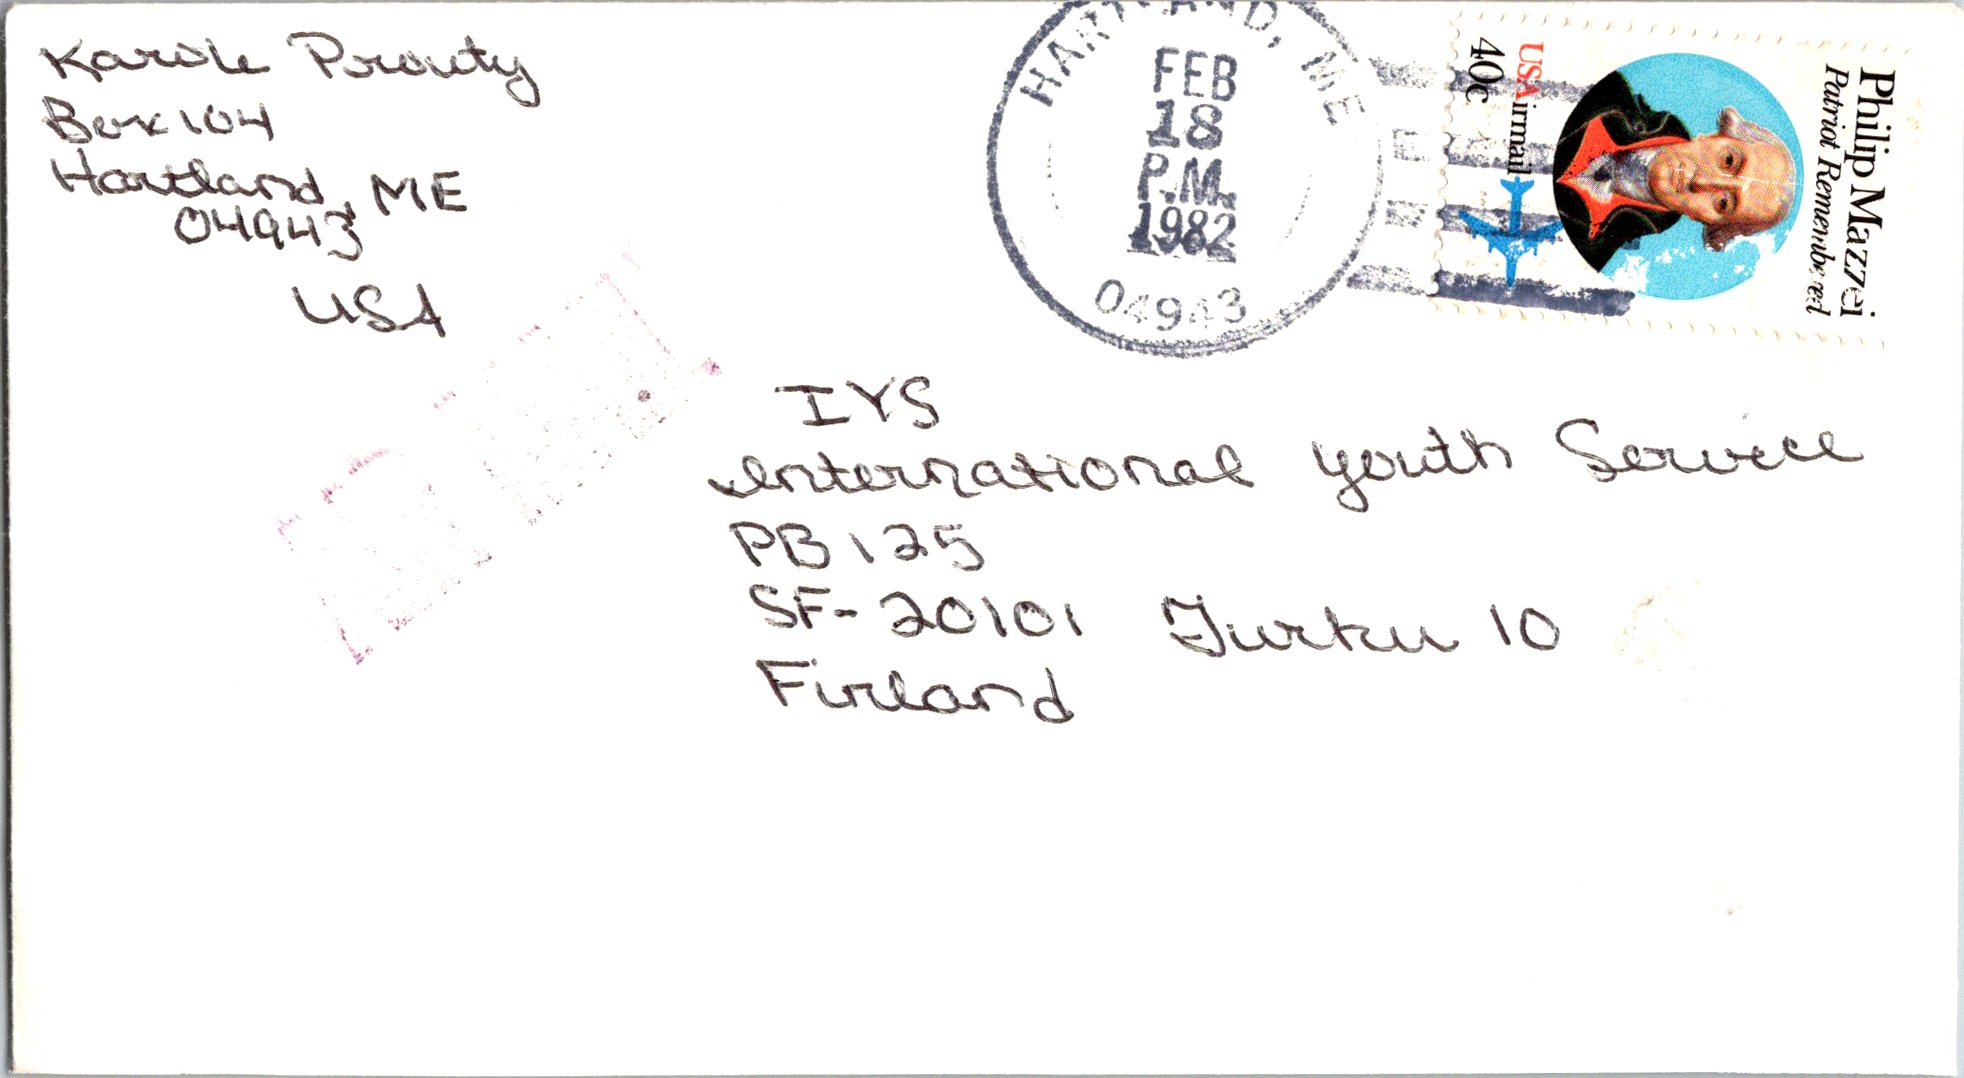 Karole Prouty
Box 104
Hartland, ME
04943
USA
HARTLAND, ME
FEB
18
P.M.
1982
04943
Philip Mazzei
Patriot Remembered
USAirmail
40c
IYS
International Youth Service
PB 125
SF-20101 Turku 10
Finland